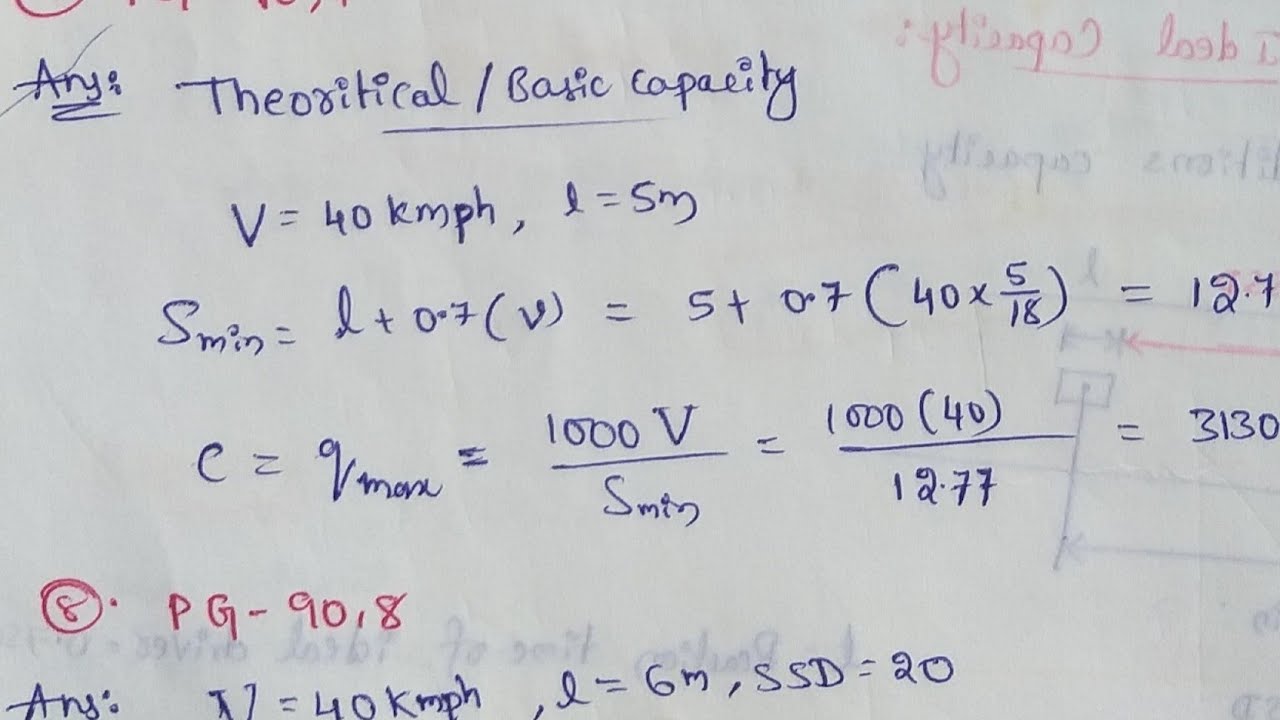 Ans: Theoritical / Basic Capacity
V = 40 kmph, l = 5m
Smin = l + 0.7 (v) = 5 + 0.7 (40 × 5/18) = 12.7
C = qmax = 1000 V / Smin = 1000 (40) / 12.77 = 3130
⑧. PG - 90, 8
Ans: V = 40 kmph, l = 6m, SSD = 20